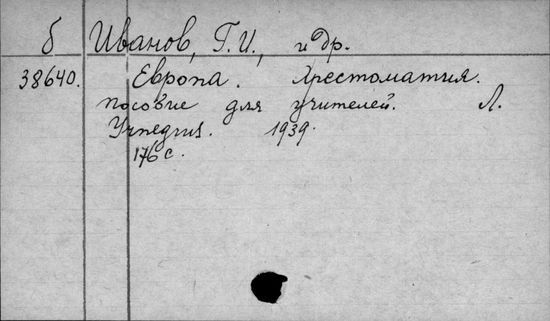 б Иванов, Г. И., и др.
38640. Европа. Хрестоматия.
пособие для учителей. Л.
Учпедгиз. 1939.
176 с.